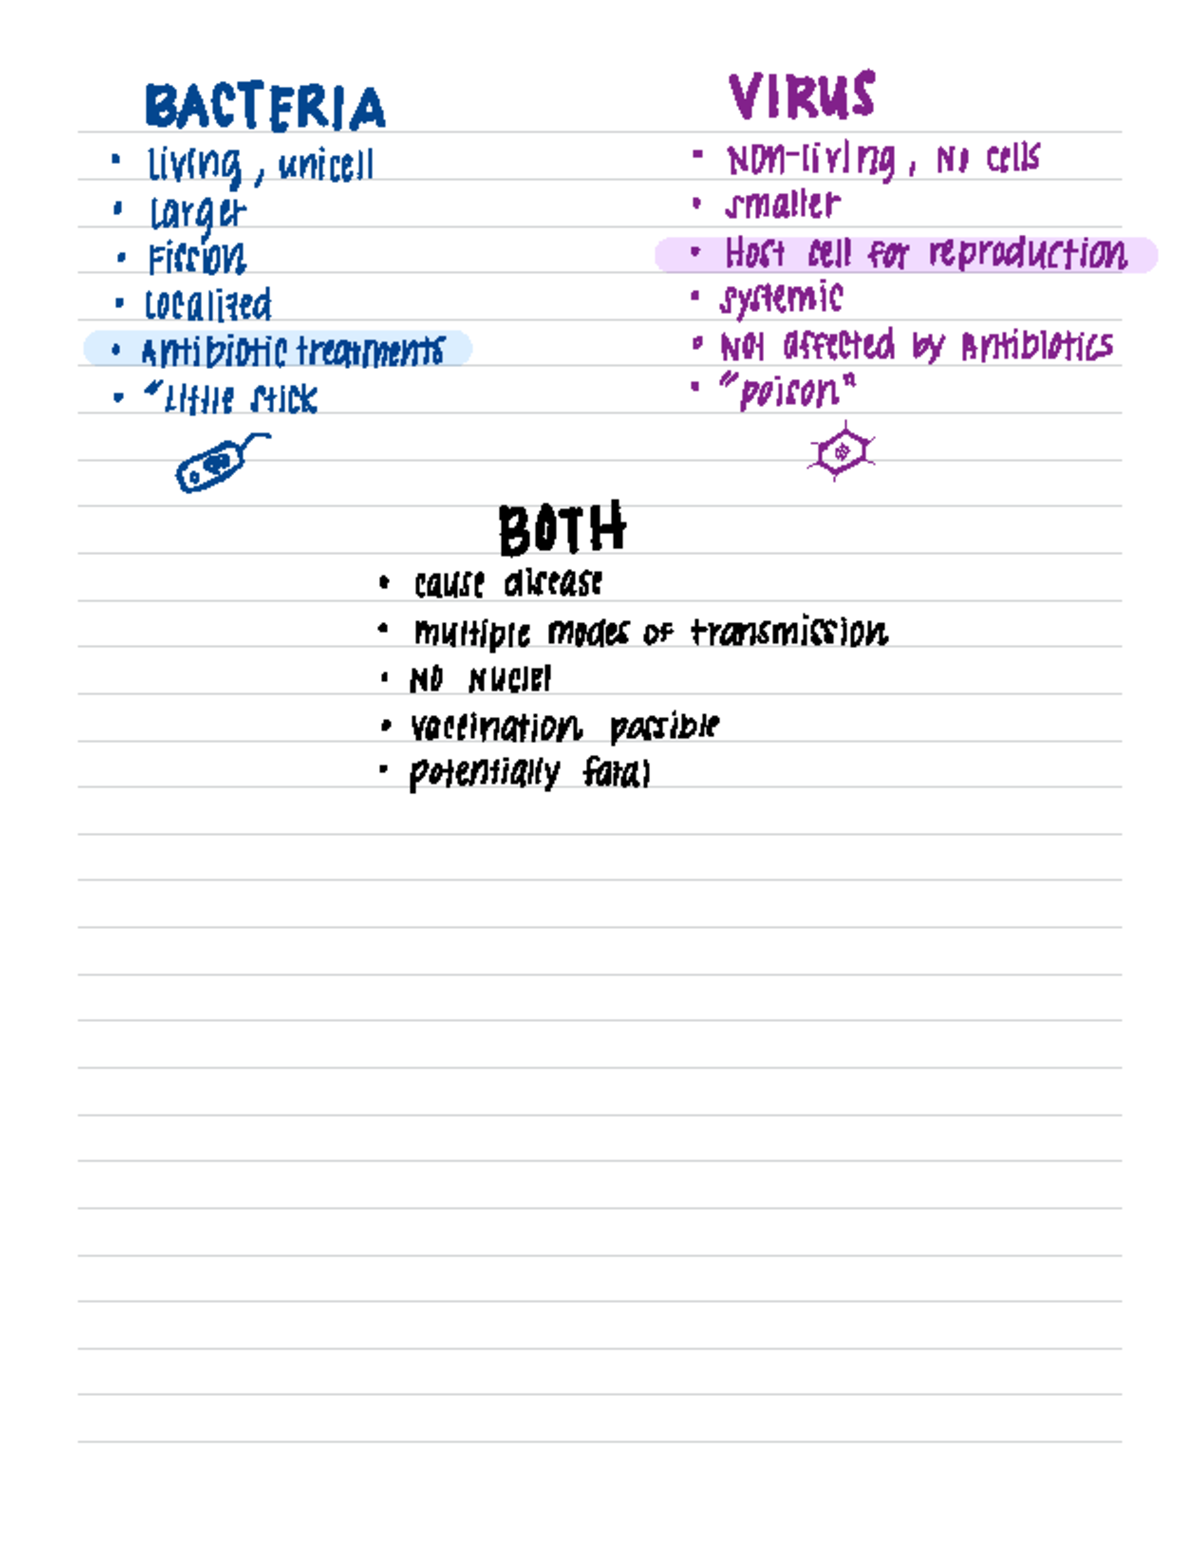 BACTERIA
• living, unicell
• Larger
• Fission
• Localized
• Antibiotic treatments
• "Little stick
VIRUS
• Non-living, No cells
• smaller
• Host cell for reproduction
• systemic
• Not affected by Antibiotics
• "poison"
BOTH
• cause disease
• multiple modes of transmission
• NO Nuclei
• vaccination possible
• potentially fatal